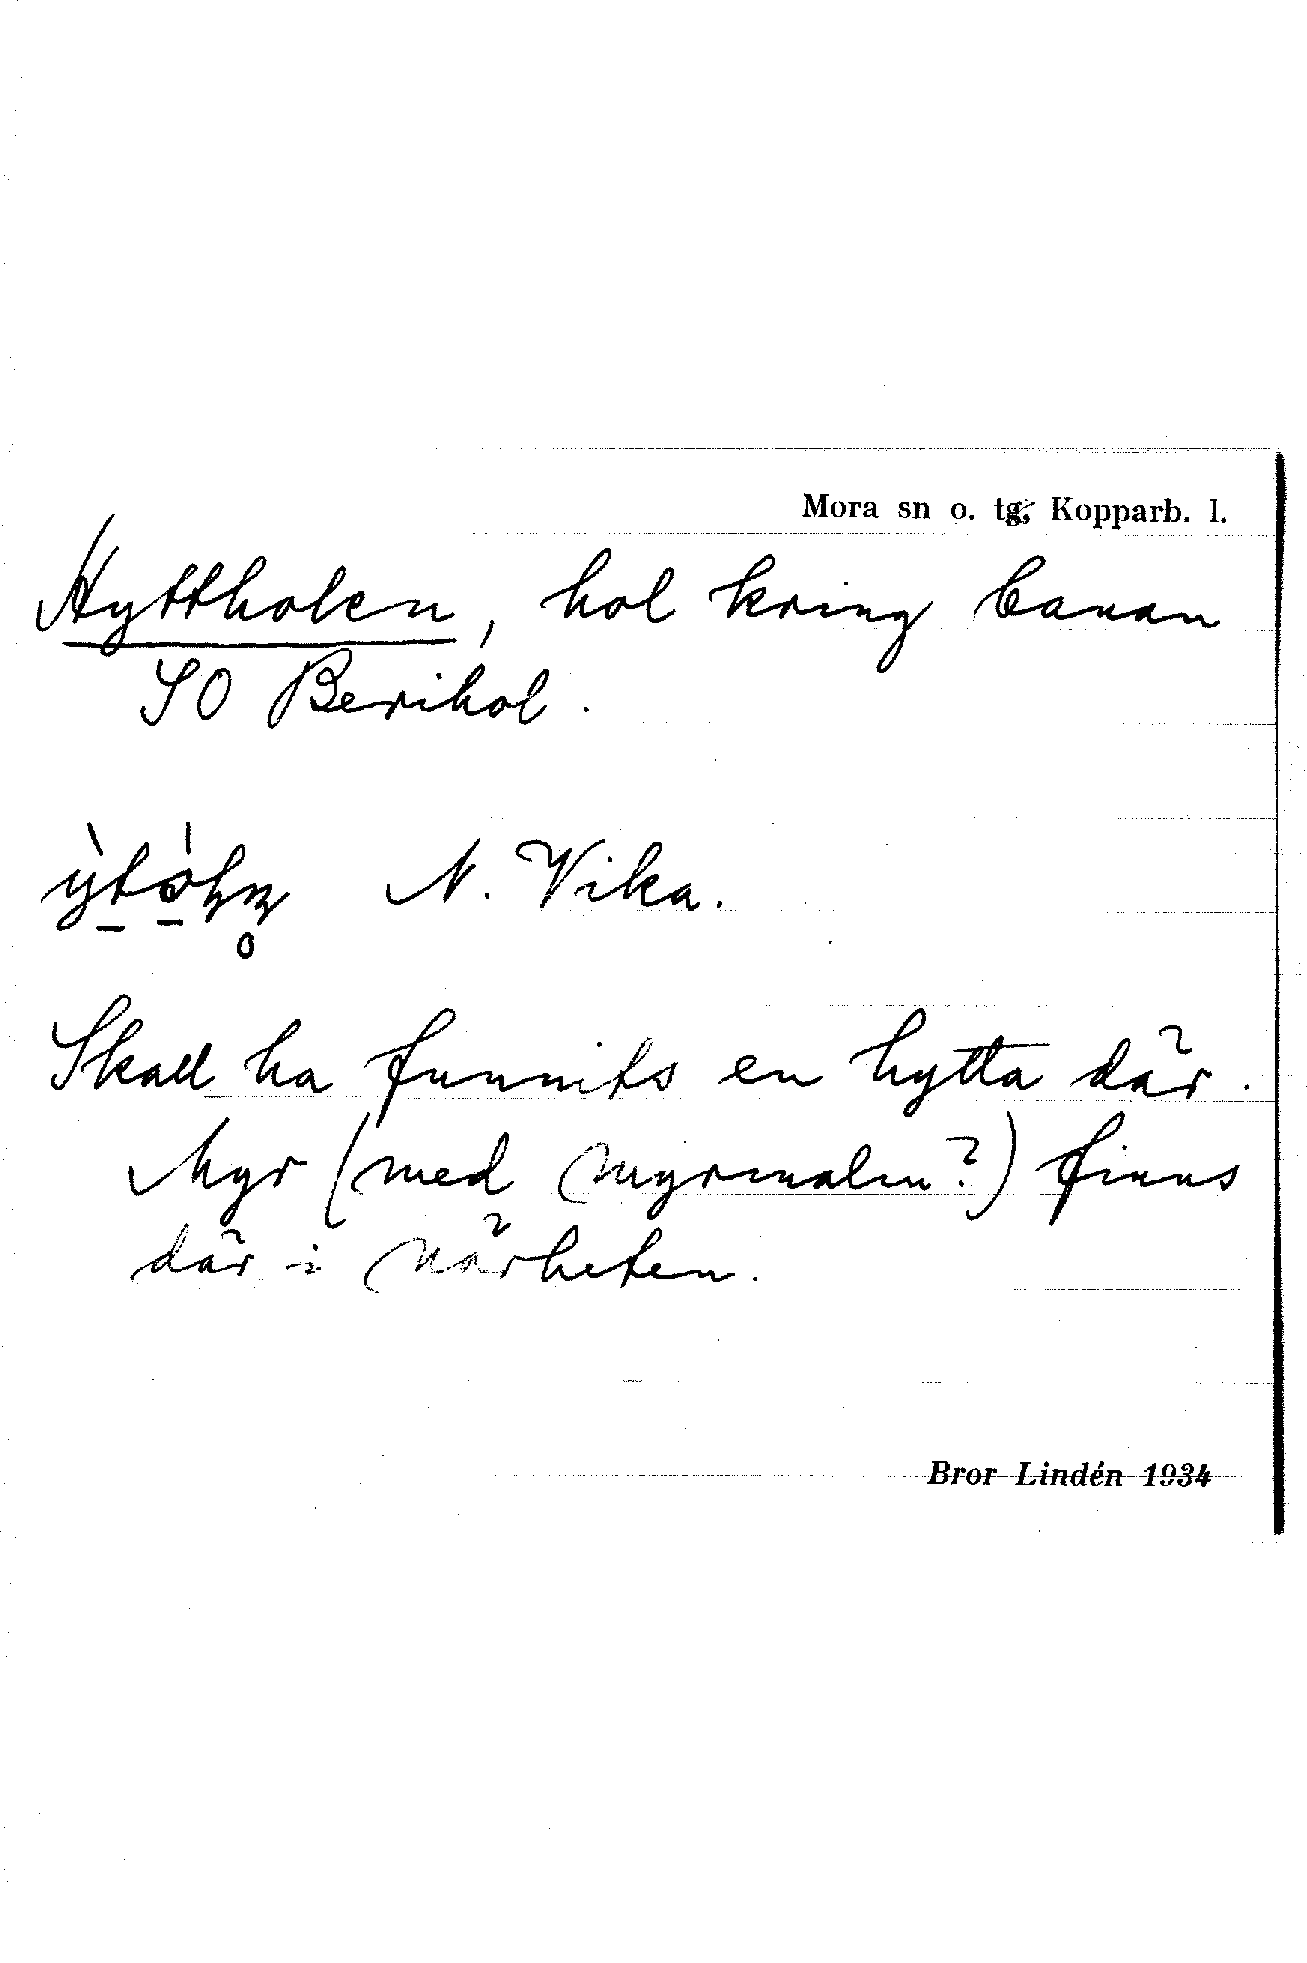 Mora sn o. tg, Kopparb. l.
Hyttholen, hol kring banan
SO Berihol.
N. Vika.
Skall ha funnits en hytta där.
Myr (med myrmalm?) finns
där i närheten.
Bror Lindén 1934